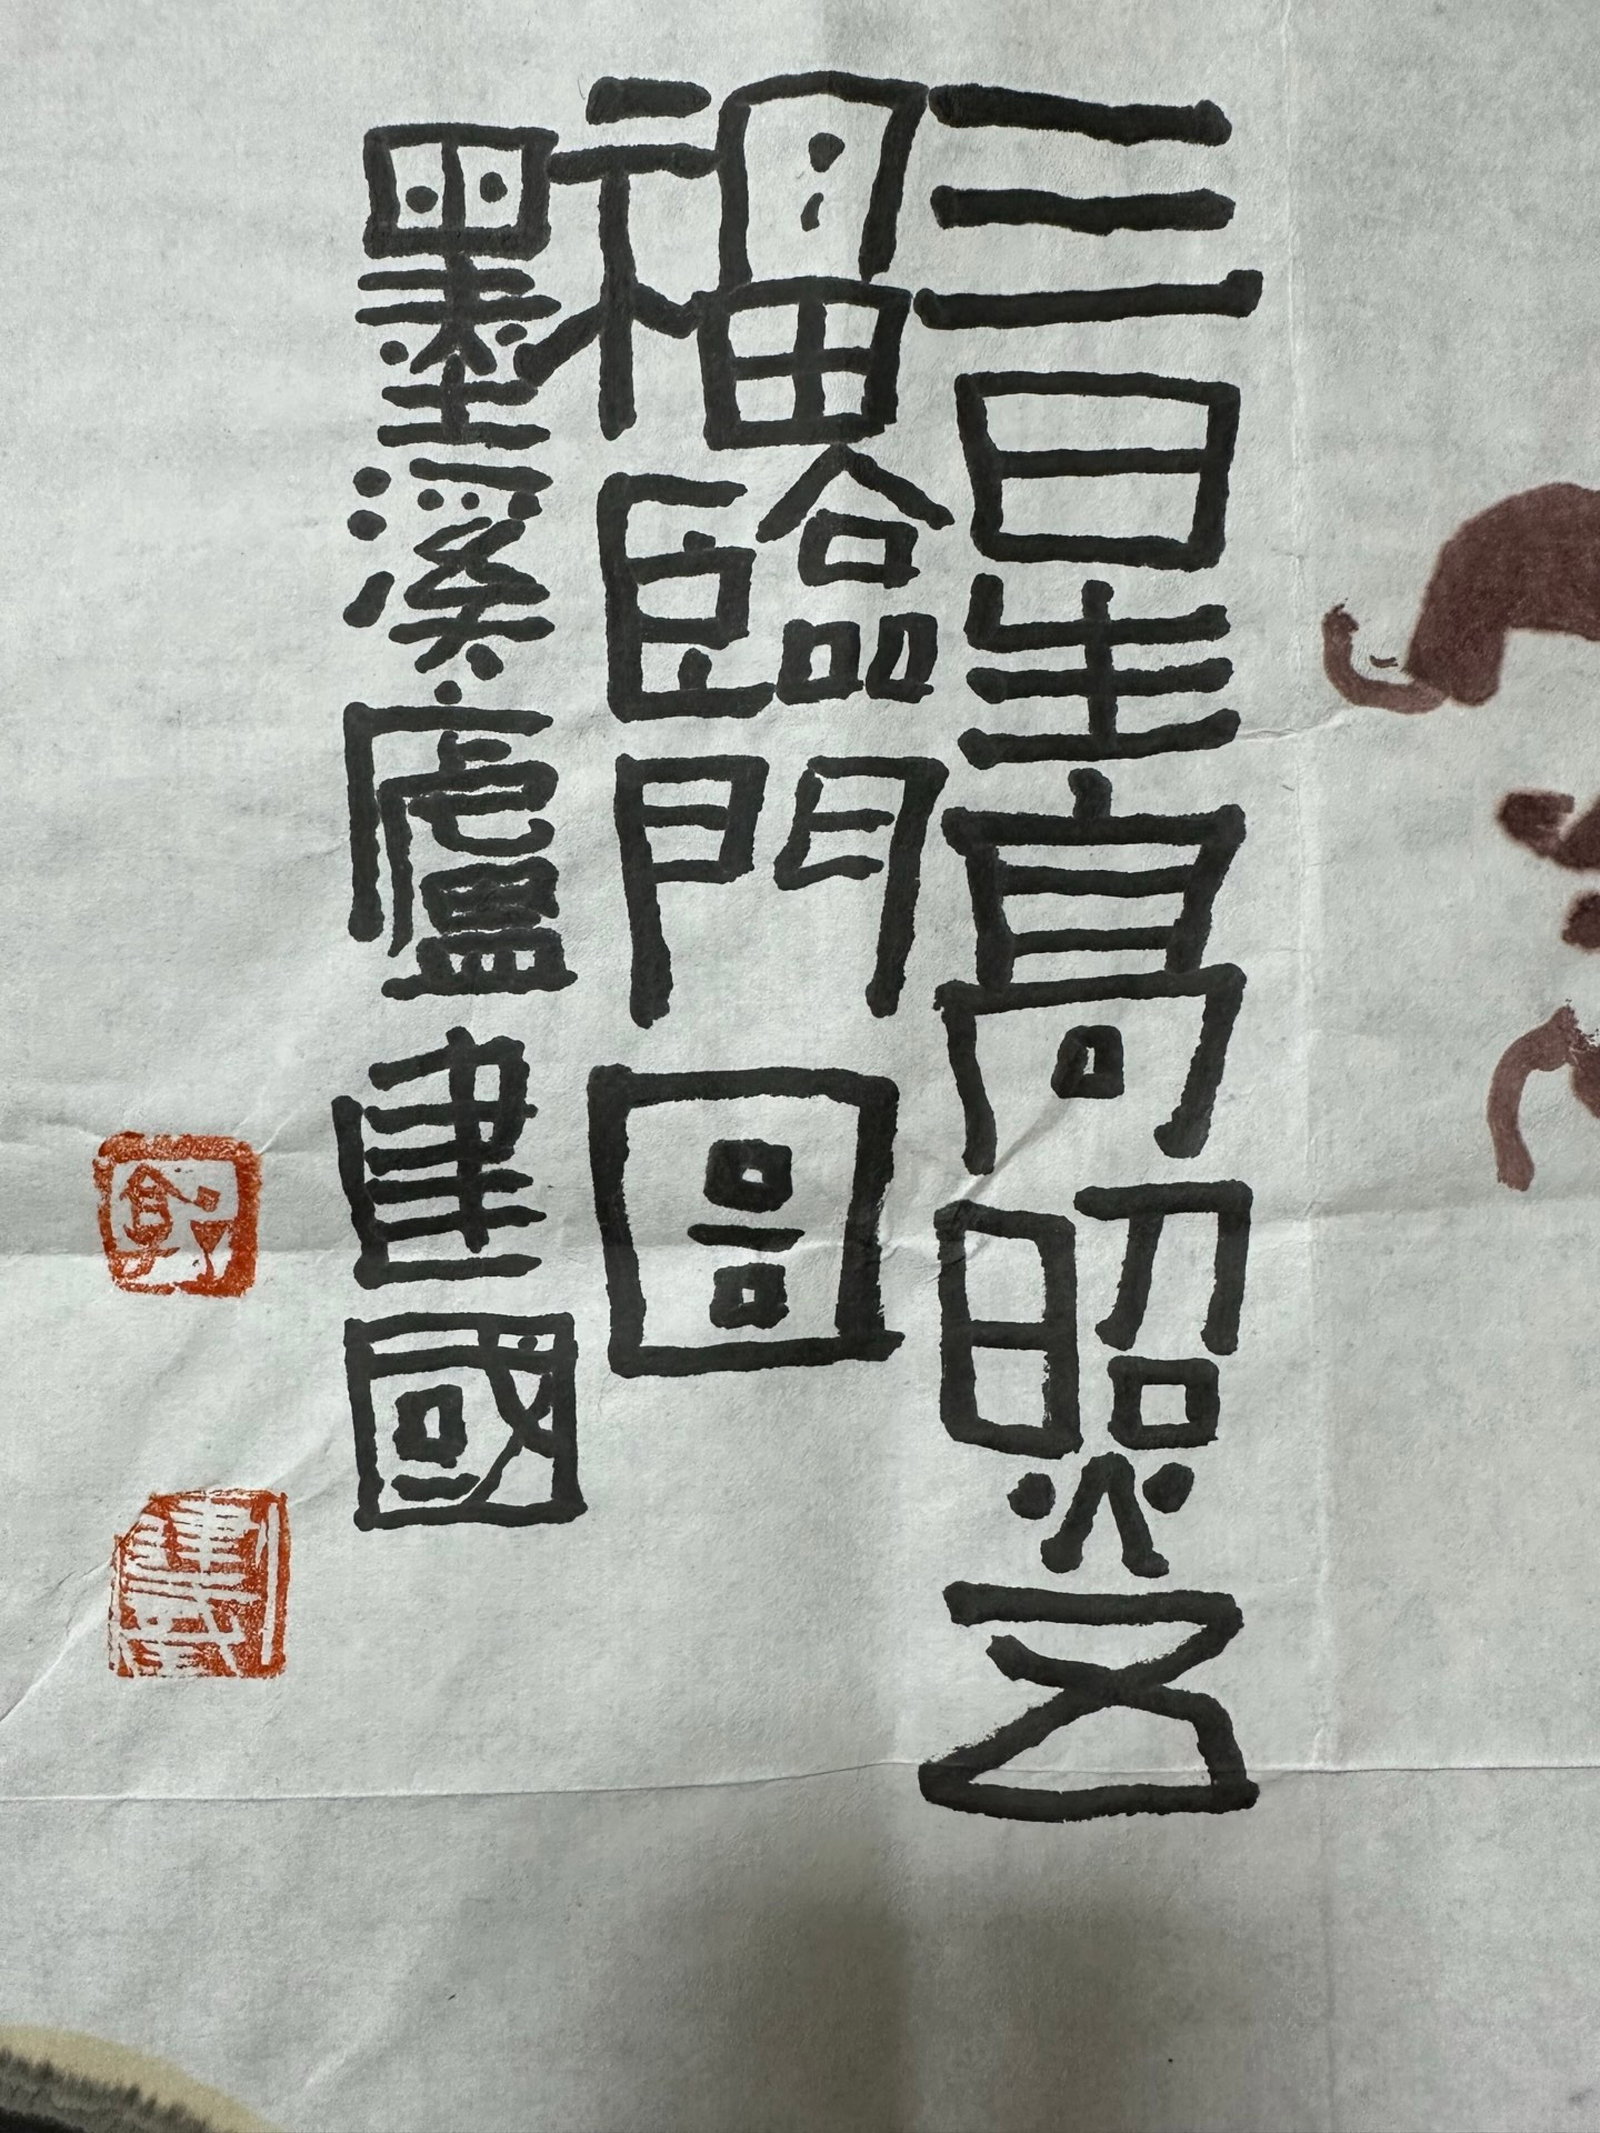 三星高照五
福臨門圖
墨溪廬建國